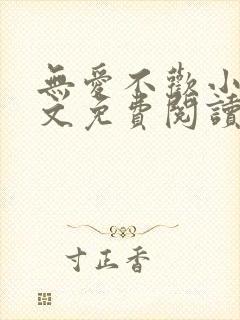 無愛不歡小
文免費閱讀
寸正香